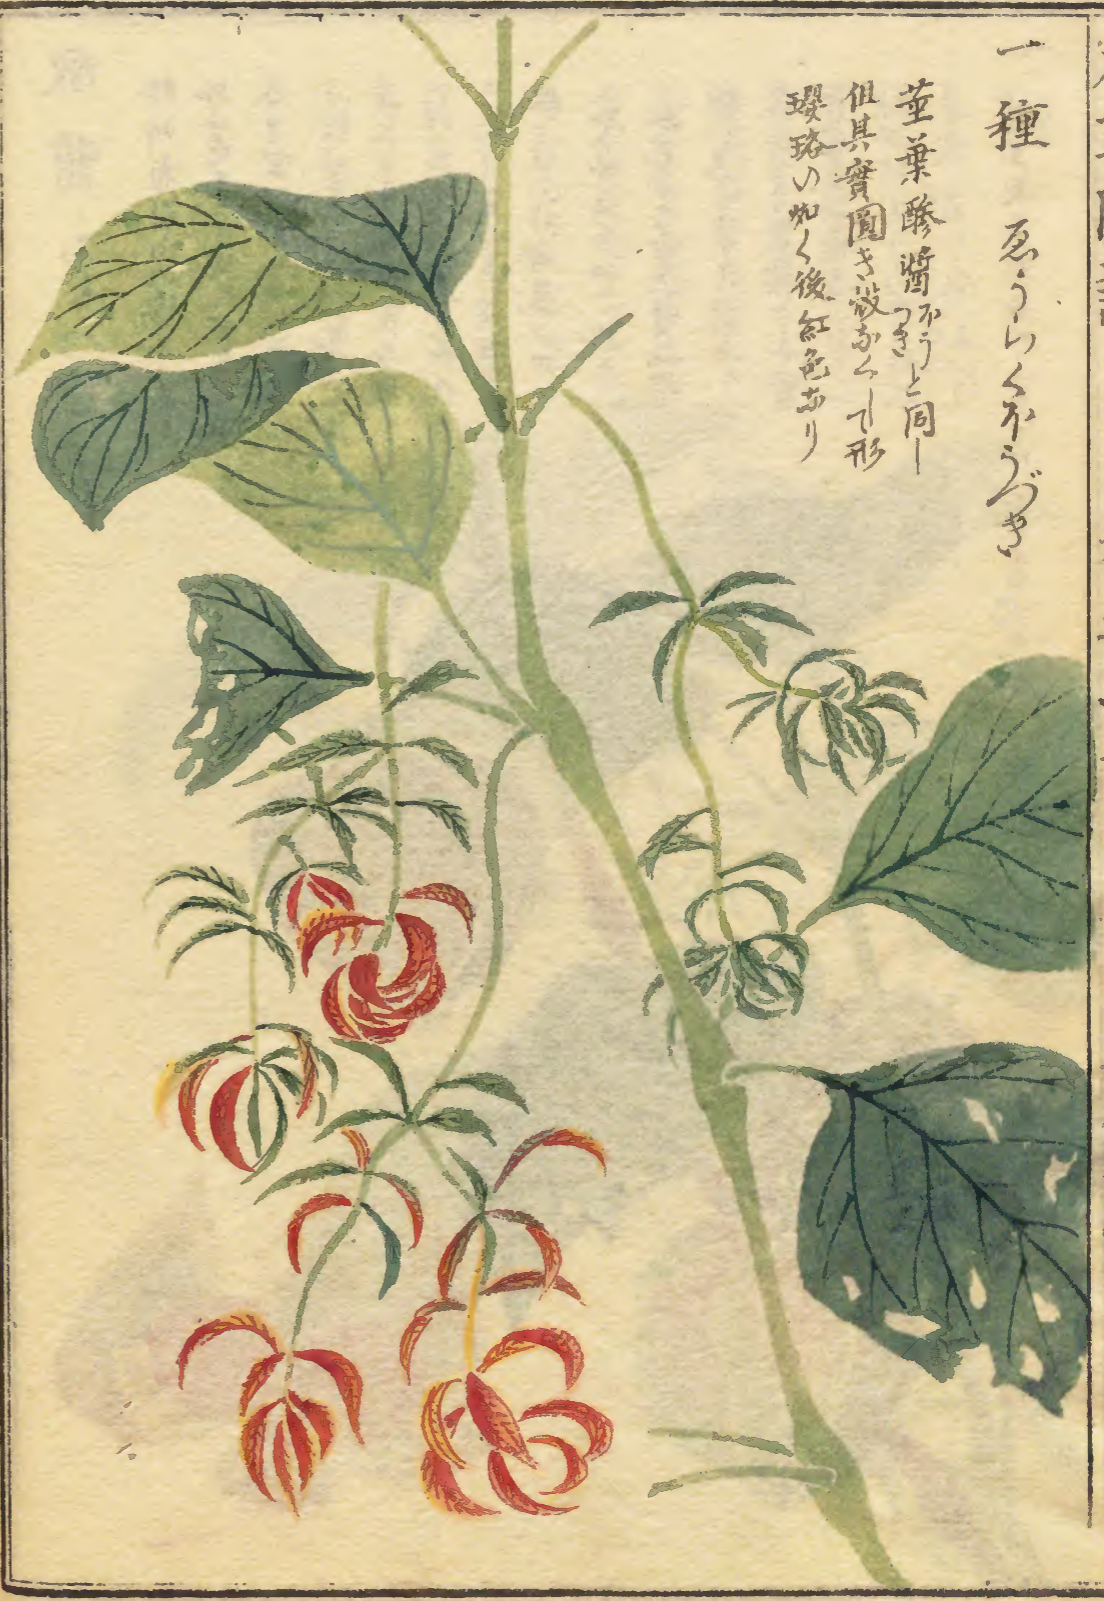 一種 ゑうらくほうづき
莖葉酸醬ほうづきと同し
但其實圓き殼なくして形
瓔珞の如く後紅色なり